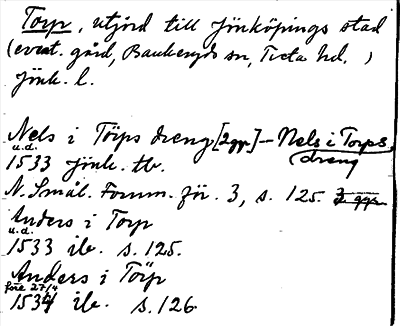 Torp, utjord till Jönköpings stad
(event. gård, Bankeryds sn, Tveta hd. )
Jönk. l.
Nels i Törps dreng [2 ggr] – Nels i Torps
dreng
u.d.
1533 Jönk. tb.
N. Smål. Fornm. för. 3, s. 125. 2 ggr.
Anders i Torp
u.d.
1533 ib. s. 125.
Anders i Törp
före 27/4
1534 ib. s. 126